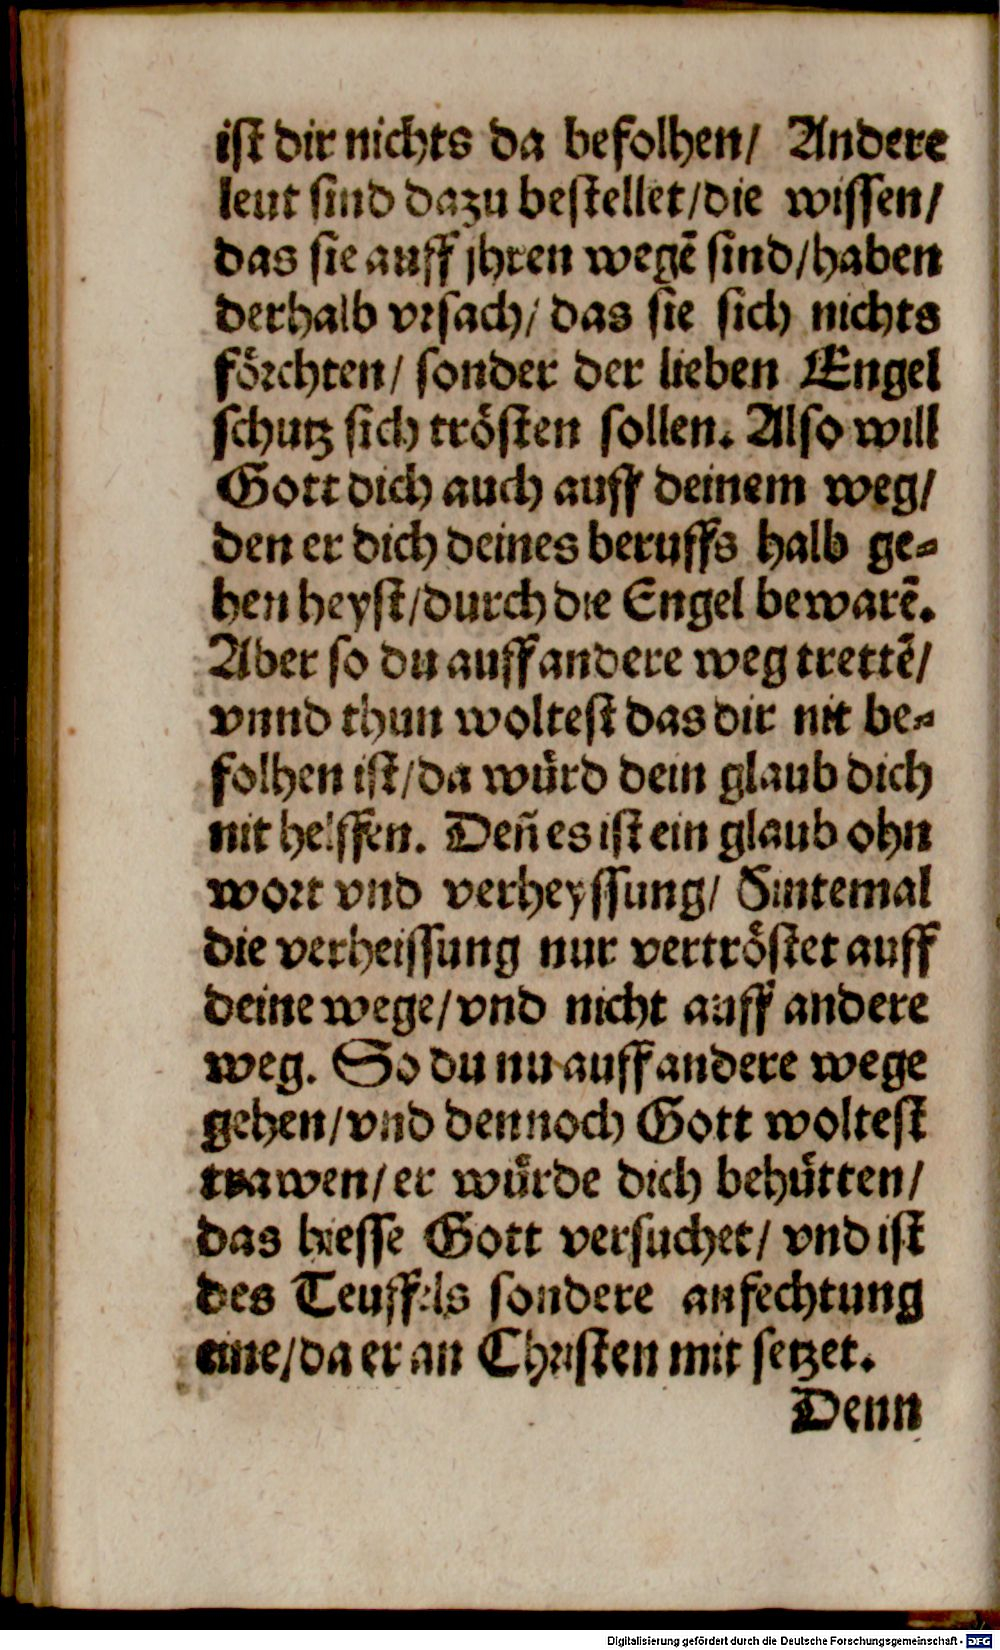 ist dir nichts da befolhen/ Andere
leut sind dazu bestellet/die wissen/
das sie auff jhren wegē sind/haben
derhalb vrsach/ das sie sich nichts
förchten/ sonder der lieben Engel
schutz sich trösten sollen. Also will
Gott dich auch auff deinem weg/
den er dich deines beruffs halb ge-
hen heyst/durch die Engel bewarē.
Aber so du auff andere weg trettē/
vnnd thun woltest das dir nit be-
folhen ist/da würd dein glaub dich
nit helffen. Den̄ es ist ein glaub ohn
wort vnd verheyssung/ Sintemal
die verheissung nur vertröstet auff
deine wege/vnd nicht auff andere
weg. So du nu auff andere wege
gehen/vnd dennoch Gott woltest
trawen/er würde dich behütten/
das hiesse Gott versuchet/ vnd ist
des Teuffels sondere anfechtung
eine/da er an Christen mit setzet.
Denn
Digitalisierung gefördert durch die Deutsche Forschungsgemeinschaft - DFG